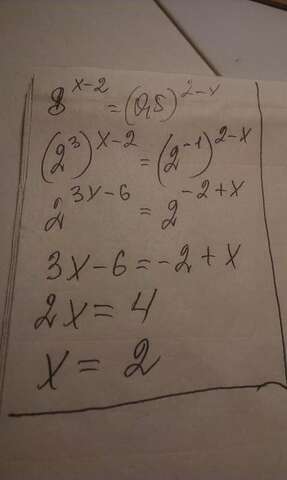 8^{x-2} = (0,5)^{2-x}
(2^3)^{x-2} = (2^{-1})^{2-x}
2^{3x-6} = 2^{-2+x}
3x-6 = -2+x
2x = 4
x = 2